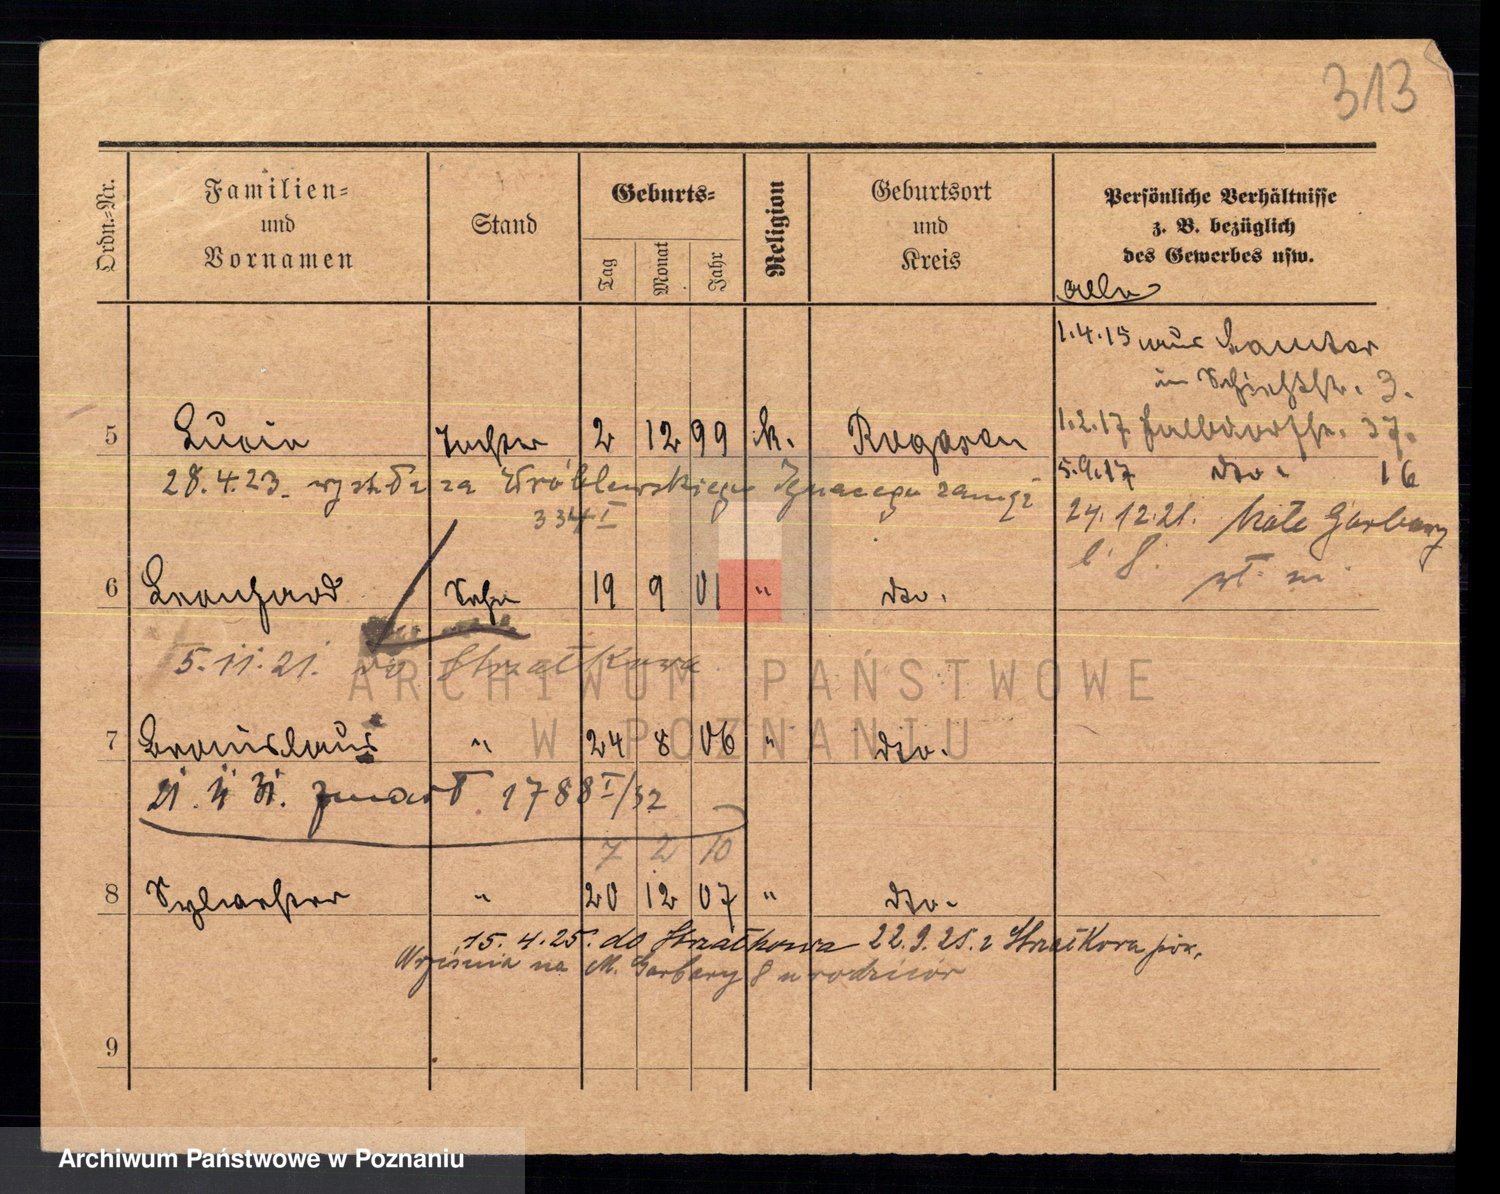 313
Ordn.=Nr.
Familien=
und
Vornamen
Stand
Geburts=
Tag
Monat
Jahr
Religion
Geburtsort
und
Kreis
Persönliche Verhältnisse
z. B. bezüglich
des Gewerbes usw.
alle
1.4.15 aus Samter
in Schießstr. 3.
5 Lucia Tochter 2 12 99 k. Rogasen 1.2.17 Halbdorfstr. 37.
28.4.23. wyszła za Wróblewskiego Ignacego zamęż 5.9.17 dto. 16
334 I 24.12.21. Małe Garbary
6 Leonhard Sohn 19 9 01 " dto.
5.11.21. do Strzałkowa
7 Bronislaus " 24 8 06 " dto.
21. 4 31. zmarł 1788 I/32
7 2 10
8 Sylvester " 20 12 07 " dto.
15.4.25. do Strzałkowa 22.9.25. z Strzałkowa pow.
Września na M. Garbary 8 u rodziców
9
ARCHIWUM PAŃSTWOWE
W POZNANIU
Archiwum Państwowe w Poznaniu